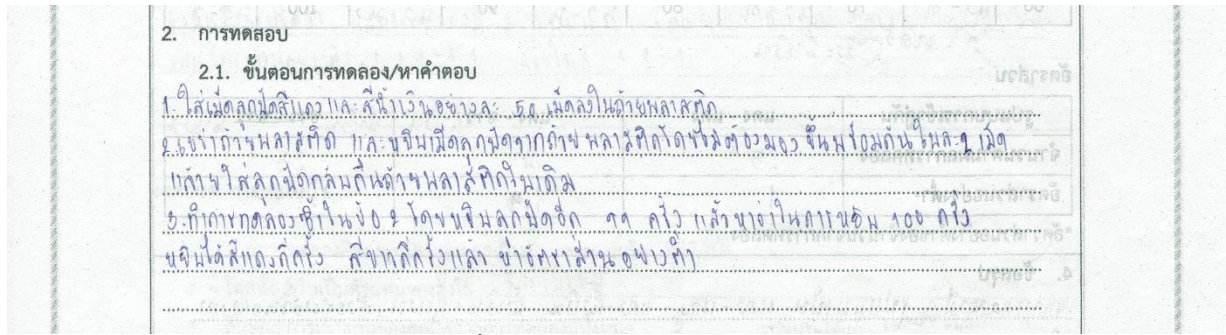 2. การทดสอบ
2.1. ขั้นตอนการทดลอง/หาคำตอบ
1. ใส่เม็ดลูกปัดสีแดงและสีน้ำเงินอย่างละ 50 เม็ดลงในถ้วยพลาสติก
2. เขย่าถ้วยพลาสติก และหยิบเม็ดลูกปัดจากถ้วยพลาสติกโดยไม่ต้องมอง ขึ้นพร้อมกันใบละ 1 เม็ด
แล้วใส่ลูกปัดกลับคืนถ้วยพลาสติกใบเดิม
3. ทำการทดลองซ้ำในข้อ 2 โดยหยิบลูกปัดอีก 99 ครั้ง แล้วหาว่าในการหยิบ 100 ครั้ง
หยิบได้สีแดงกี่ครั้ง กี่ครั้งแล้ว อัตราส่วนอย่างต่ำ